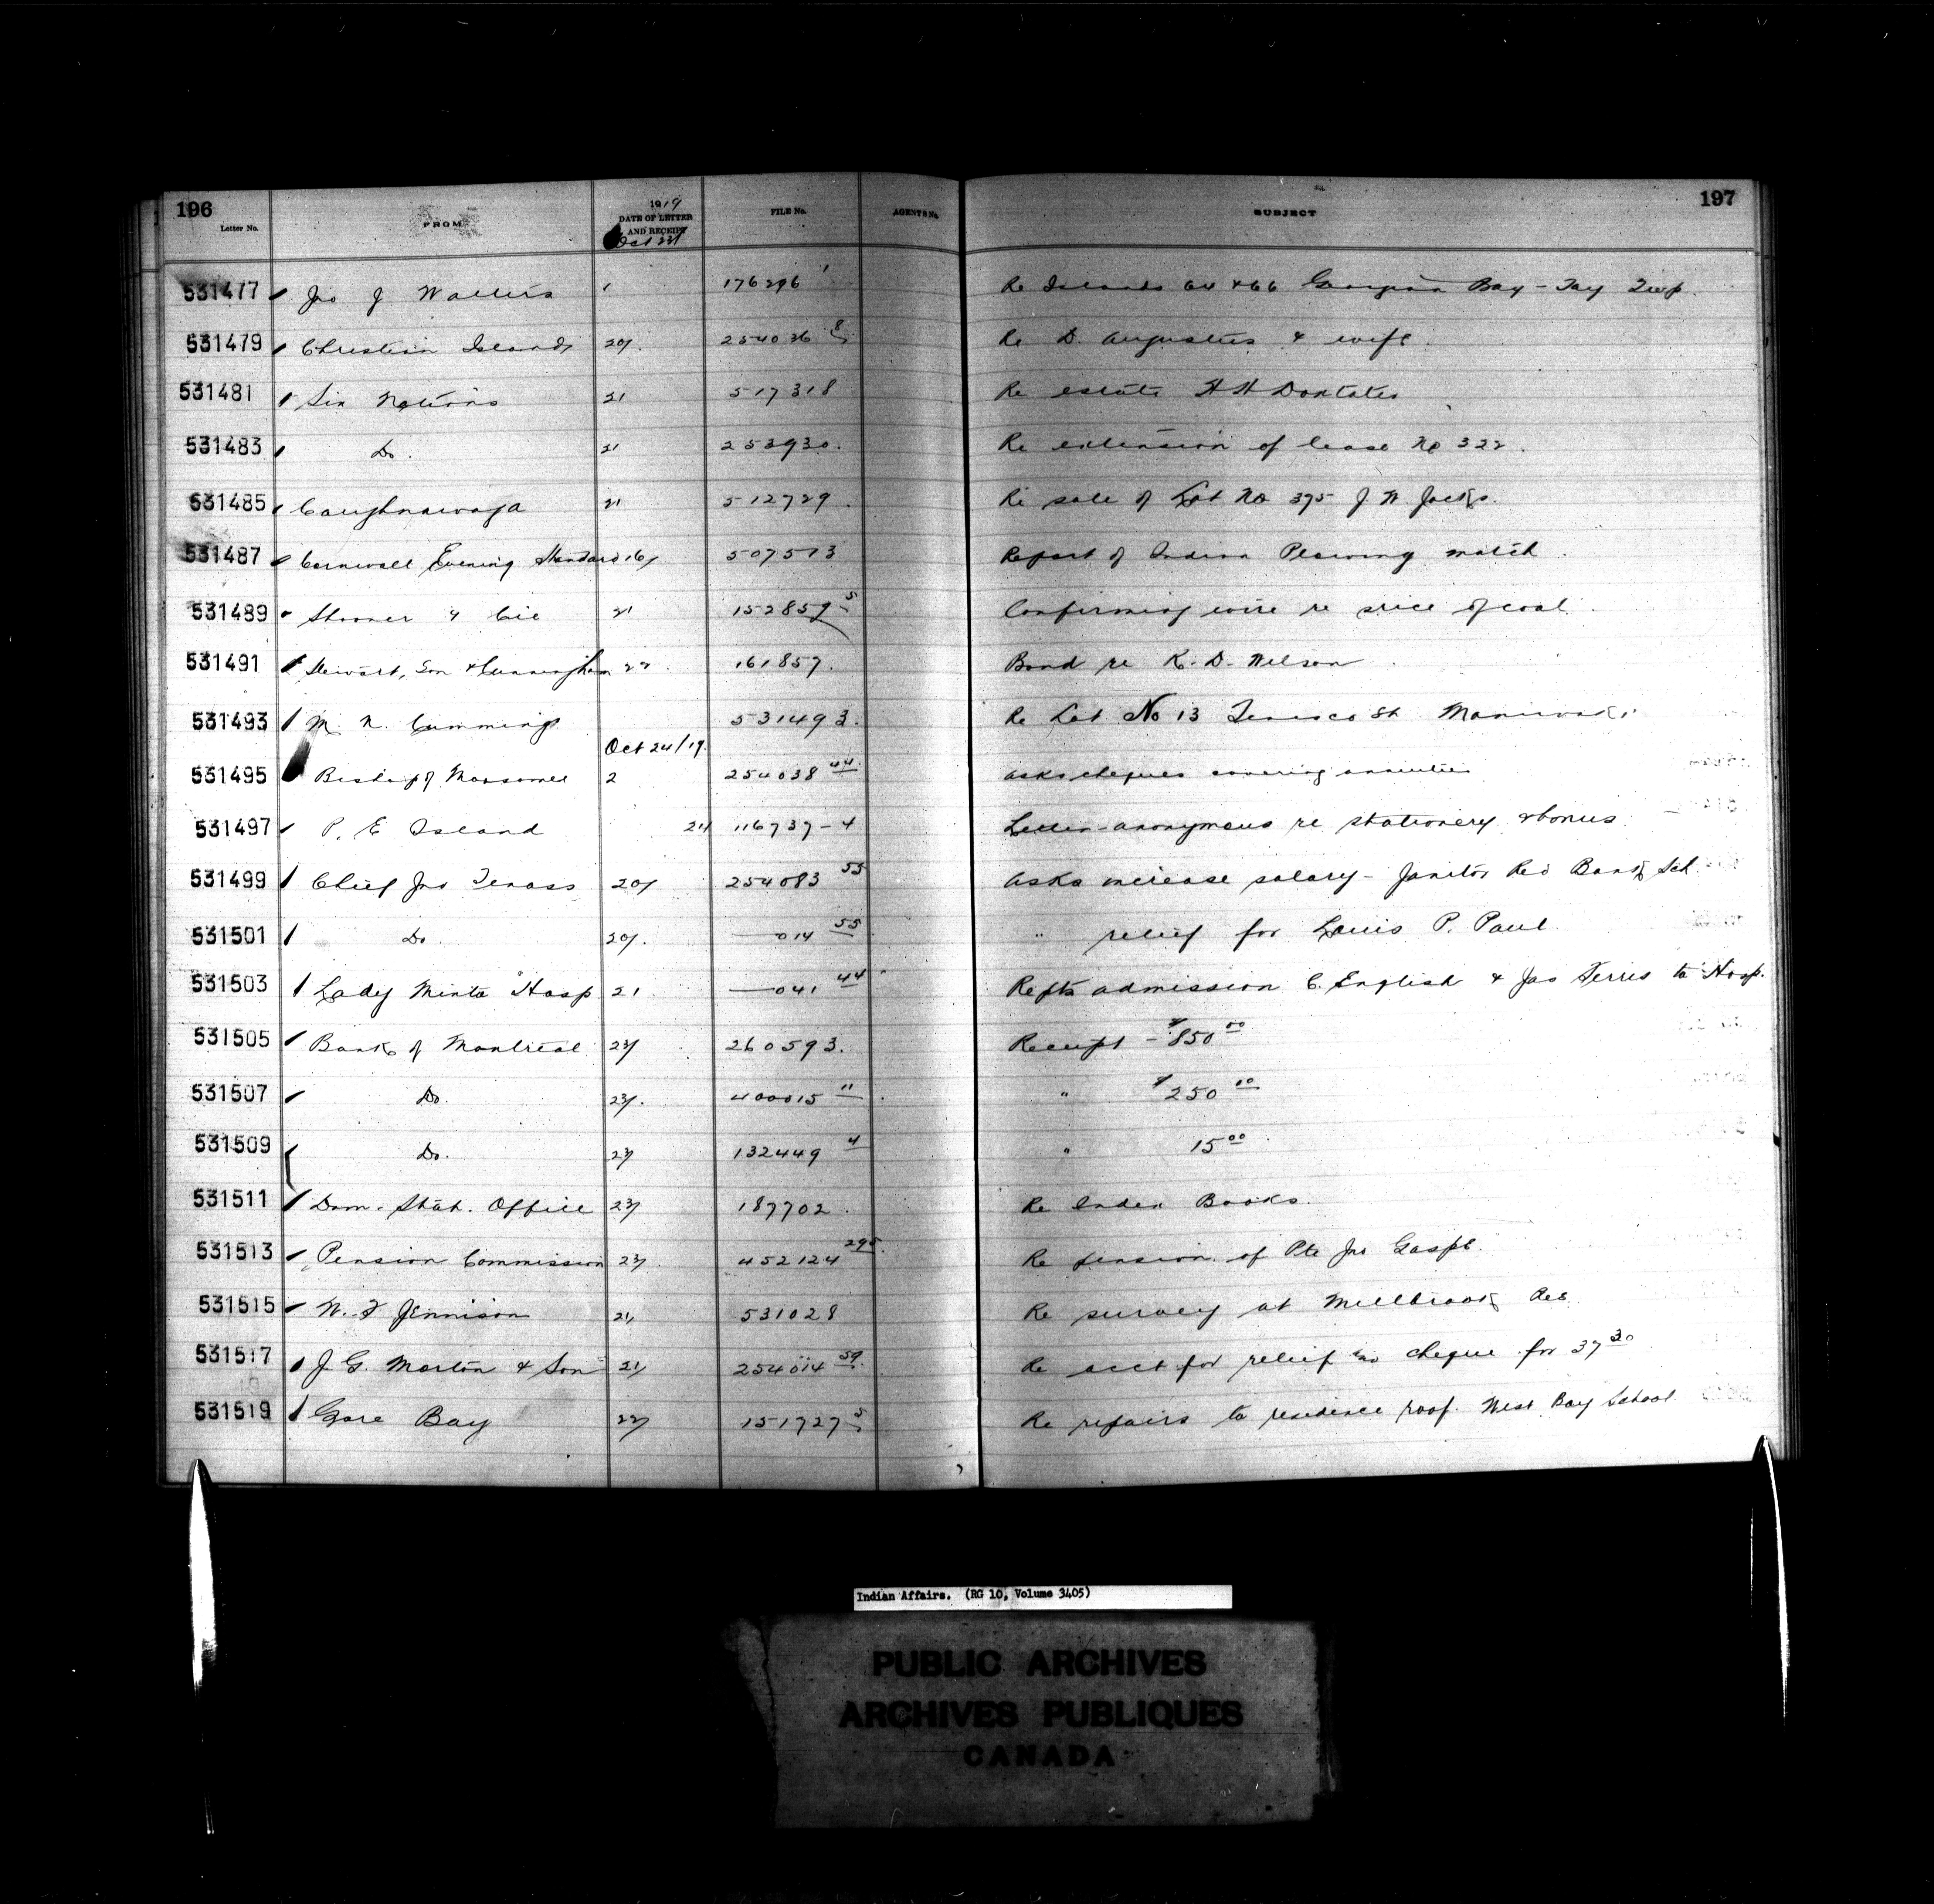 196
197
Letter No. FROM 1919 DATE OF LETTER AND RECEIPT FILE No. AGENTS No. SUBJECT
Oct 23/
531477 Jno J Walters 1 176296 1 Re Islands 64 & 66 Georgian Bay - Tay Twp.
531479 Christian Island 20/. 254036 8 Re D. Augustus & wife.
531481 Six Nations 21 517318 Re estate H H Doxtater
531483 Do. 21 253930. Re extension of lease No 322.
531485 Caughnawaga 21 512729. Re sale of Lot No 375 J. W. Jacks.
531487 Cornwall Evening Standard 16/ 507513 Report of Indian Plowing match.
531489 & Cie 21 152859 5 Confirming wire re price of coal.
531491 Stewart, Son & Cunningham 22. 161857. Bond re K. D. Wilson
531493 M. N. Cummings 531493. Re Lot No 13 St Maniwaki.
Oct 24/19.
531495 Bishop of Moosonee 2 254038 44 Asks cheques covering annuities
531497 P. E Island 21/ 116737-4 Letter - anonymous re stationery & bonus
531499 Chief Jno Tenass 20/ 254083 55 Asks increase salary - Janitor Red Bank Sch.
531501 Do. 20/. —014 55 " relief for Louis P. Paul.
531503 Lady Minto Hosp 21. —041 44 Repts admission C. English & Jas Ferris to Hosp.
531505 Bank of Montreal 23/ 260593. Receipt - $850 00
531507 Do. 23/. 400015 11 " $250 00
531509 Do. 23/ 132449 4 " 15 00
531511 Dom. Stat. Office 23/ 187702. Re Index Books.
531513 Pension Commission 23/. 452124 295. Re pension of Pte Jno Gaspe.
531515 W. F Jennison 21/ 531028 Re survey at Millbrook Res
531517 J. G. Morton & Son 21/ 254014 59. Re acct for relief cheque for 37 30
531519 Gore Bay 22/ 151727 5 Re repairs to residence roof. West Bay School
Indian Affairs. (RG 10, Volume 3405)
PUBLIC ARCHIVES
ARCHIVES PUBLIQUES
CANADA